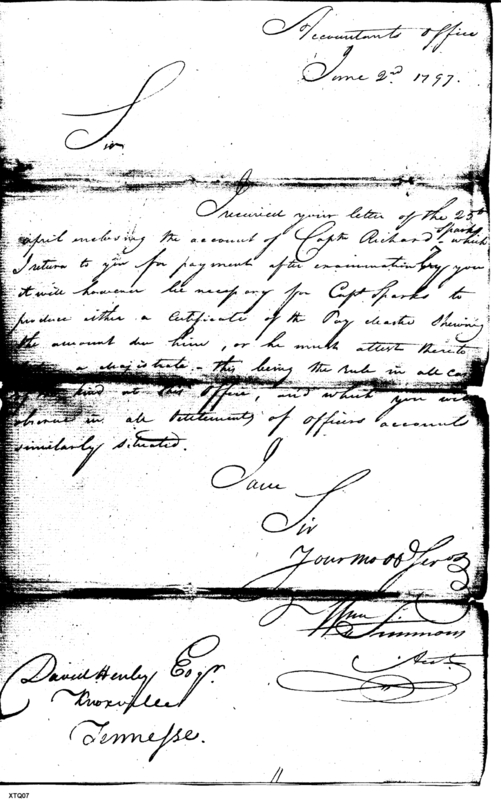 Accountants Office
June 2nd 1797.
Sir
I received your letter of the 25th
april enclosing the account of Captn Richard Sparks which
I return to you for payment after examination by you
it will however be necessary for Capt Sparks to
produce either a Certificate of the Pay Master shewing
the amount due him, or he must attest thereto
a Magistrate - this being the rule in all
kind at this Office, and which you will
observe in all settlements of Officers accounts
similarly situated.
I am
Sir
Your mo ob Servt
Wm Simmons
Acct
David Henley Esqr.
Knoxville
Tennessee.
XTQ07